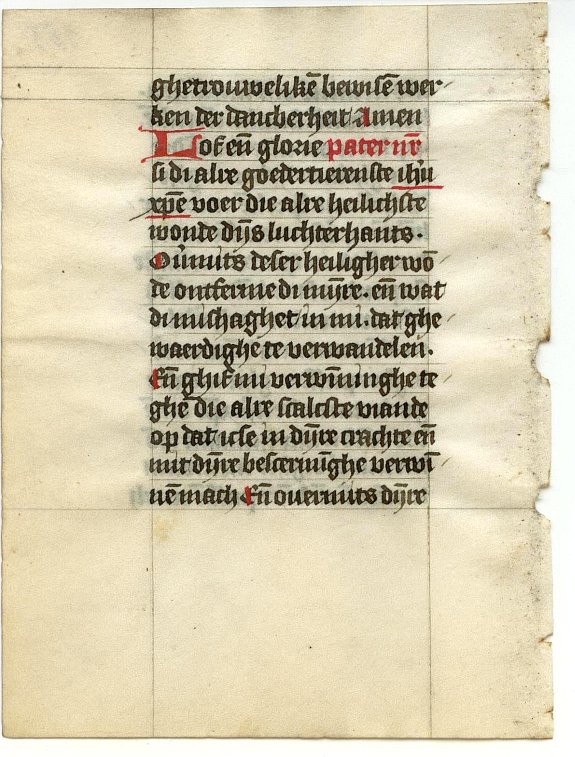 ghetrouwelikē bewisē wer-
ken der dancberheit Amen
Lof eñ glorie pater nr̄
si di alre goedertierenste ihū
xpē voer die alre heilichste
wonde dijs luchterhants.
Ouermits deser heiligher wō
de ontferme di mijre. eñ wat
di mishaghet in mi. dat ghe
waerdighe te verwandelen.
Eñ ghif mi verwinninghe te
ghē die alre scalcste viande
op dat icse in dijre crachte eñ
mit dijre beschermīghe verwī
nē mach Eñ ouermits dijre